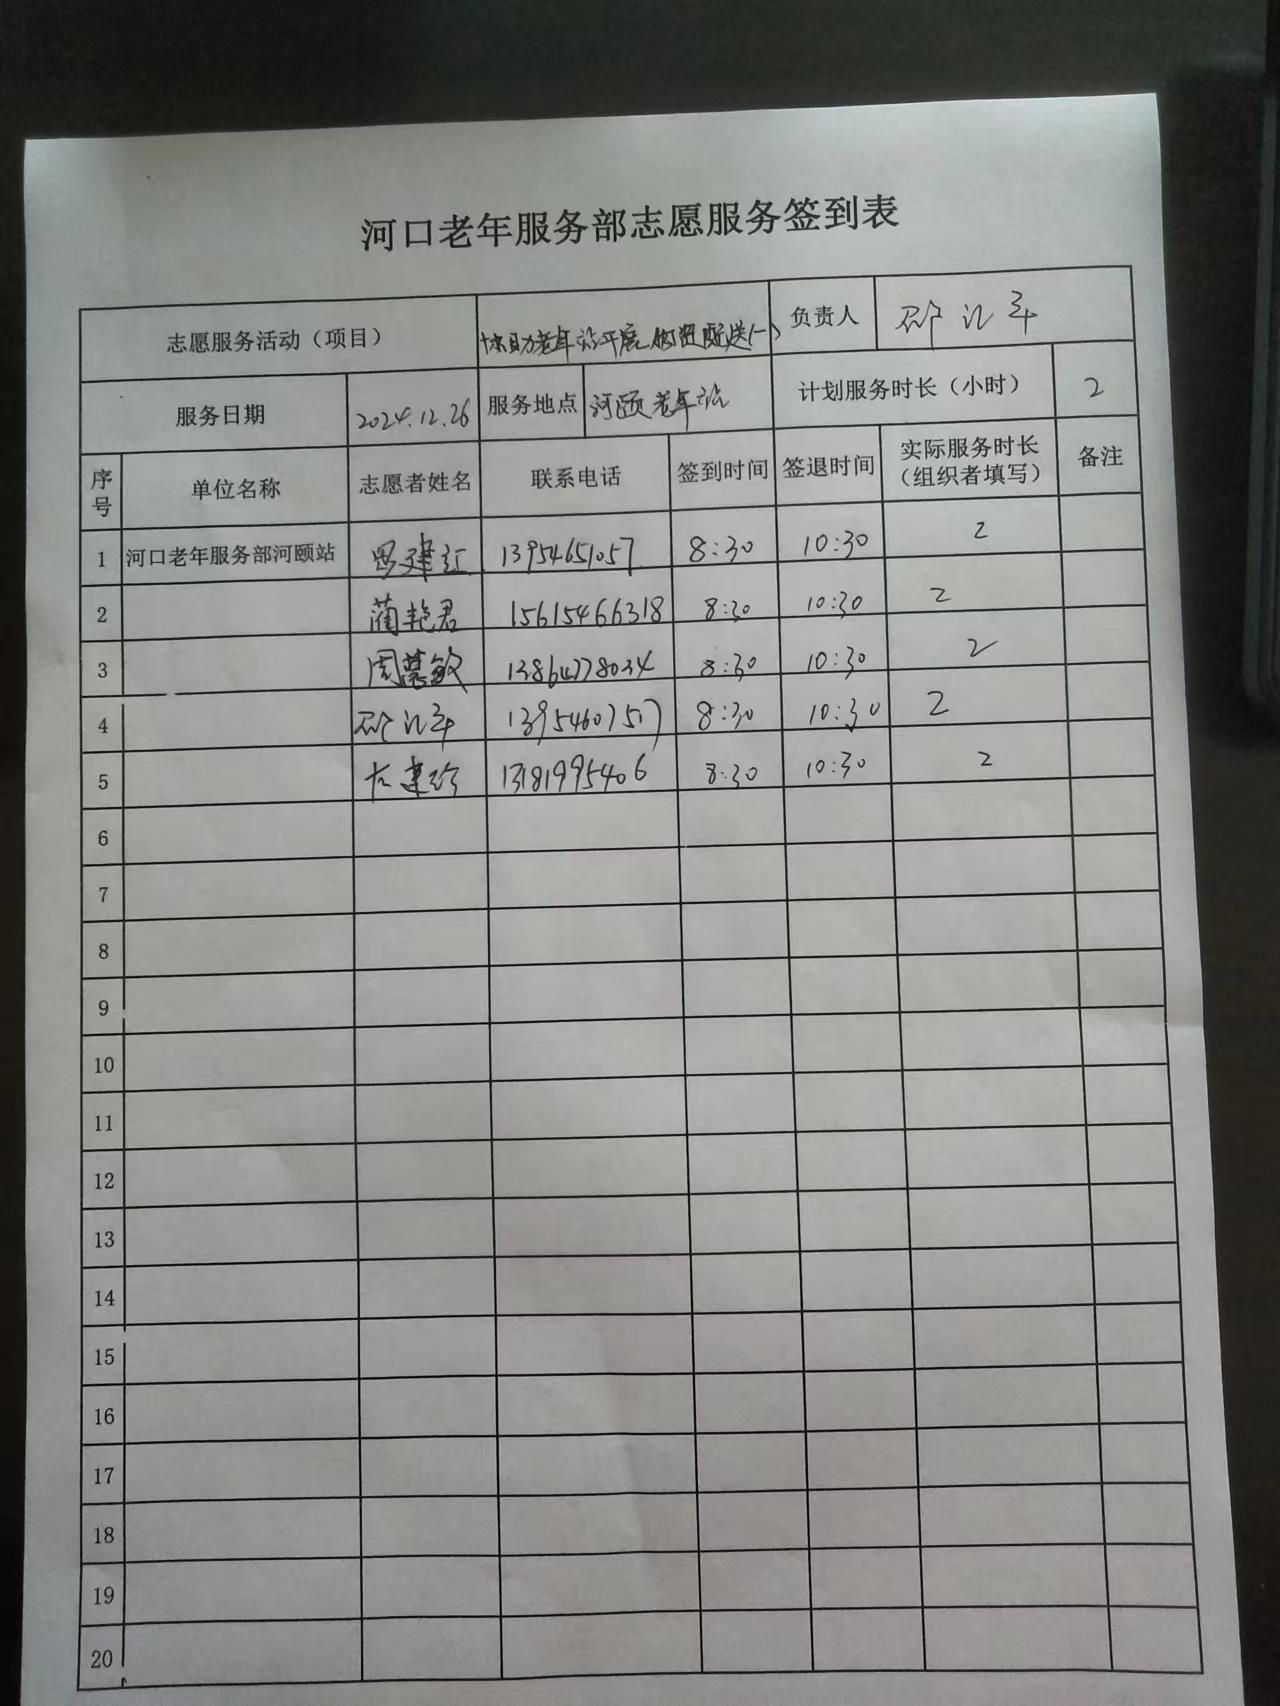 河口老年服务部志愿服务签到表
志愿服务活动（项目） 协助老年站开展物资配送(一) 负责人
服务日期 2024.12.26 服务地点 河颐老年站 计划服务时长（小时） 2
序号 单位名称 志愿者姓名 联系电话 签到时间 签退时间 实际服务时长（组织者填写） 备注
1 河口老年服务部河颐站 罗建红 13954651057 8:30 10:30 2
2 蔺艳君 15615466318 8:30 10:30 2
3 周慧敏 13864778034 8:30 10:30 2
4 13954607517 8:30 10:30 2
5 13181995406 8:30 10:30 2
6
7
8
9
10
11
12
13
14
15
16
17
18
19
20